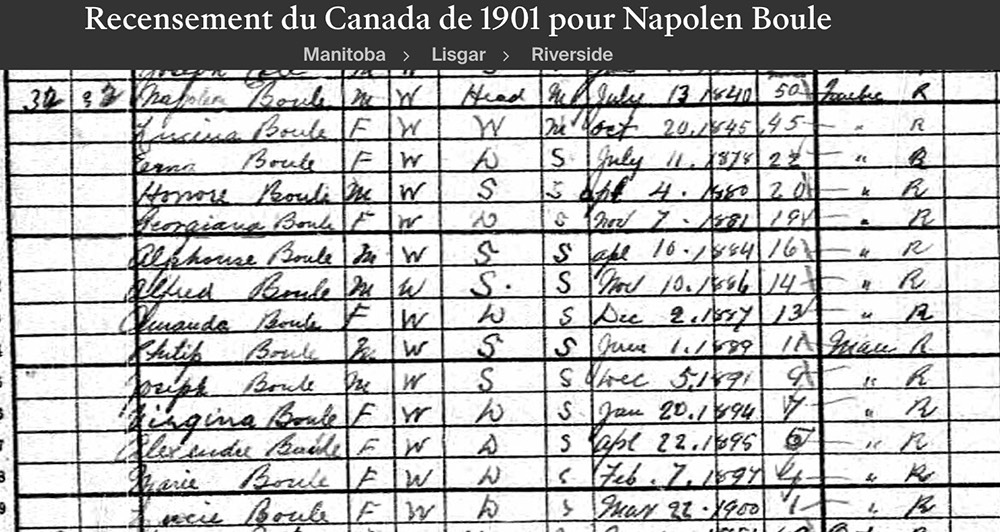 Recensement du Canada de 1901 pour Napolen Boule
Manitoba > Lisgar > Riverside
32 32 Napolen Boule M W Head M July 13 1840 50 Quebec R
Lucina Boule F W W M Oct 20. 1845 45 " R
Boule F W D S July 11. 1878 22 " R
Honore Boule M W S S apl 4. 1880 20 " R
Georgiana Boule F W D S Nov 7. 1881 19 " R
Alphonse Boule M W S S apl 10. 1884 16 " R
Alfred Boule M W S. S Nov 10. 1886 14 " R
Amanda Boule F W D S Dec 2. 1887 13 " R
Philip Boule M W S S June 1. 1889 11 Man R
Joseph Boule M W S S Dec 5. 1891 9 " R
Virgina Boule F W D S Jan 20. 1894 7 " R
Alexendre Boule F W D S apl 22. 1895 5 " R
Marie Boule F W D S Feb. 7. 1897 4 " R
Lucie Boule F W D S Mar 22. 1900 1 " R